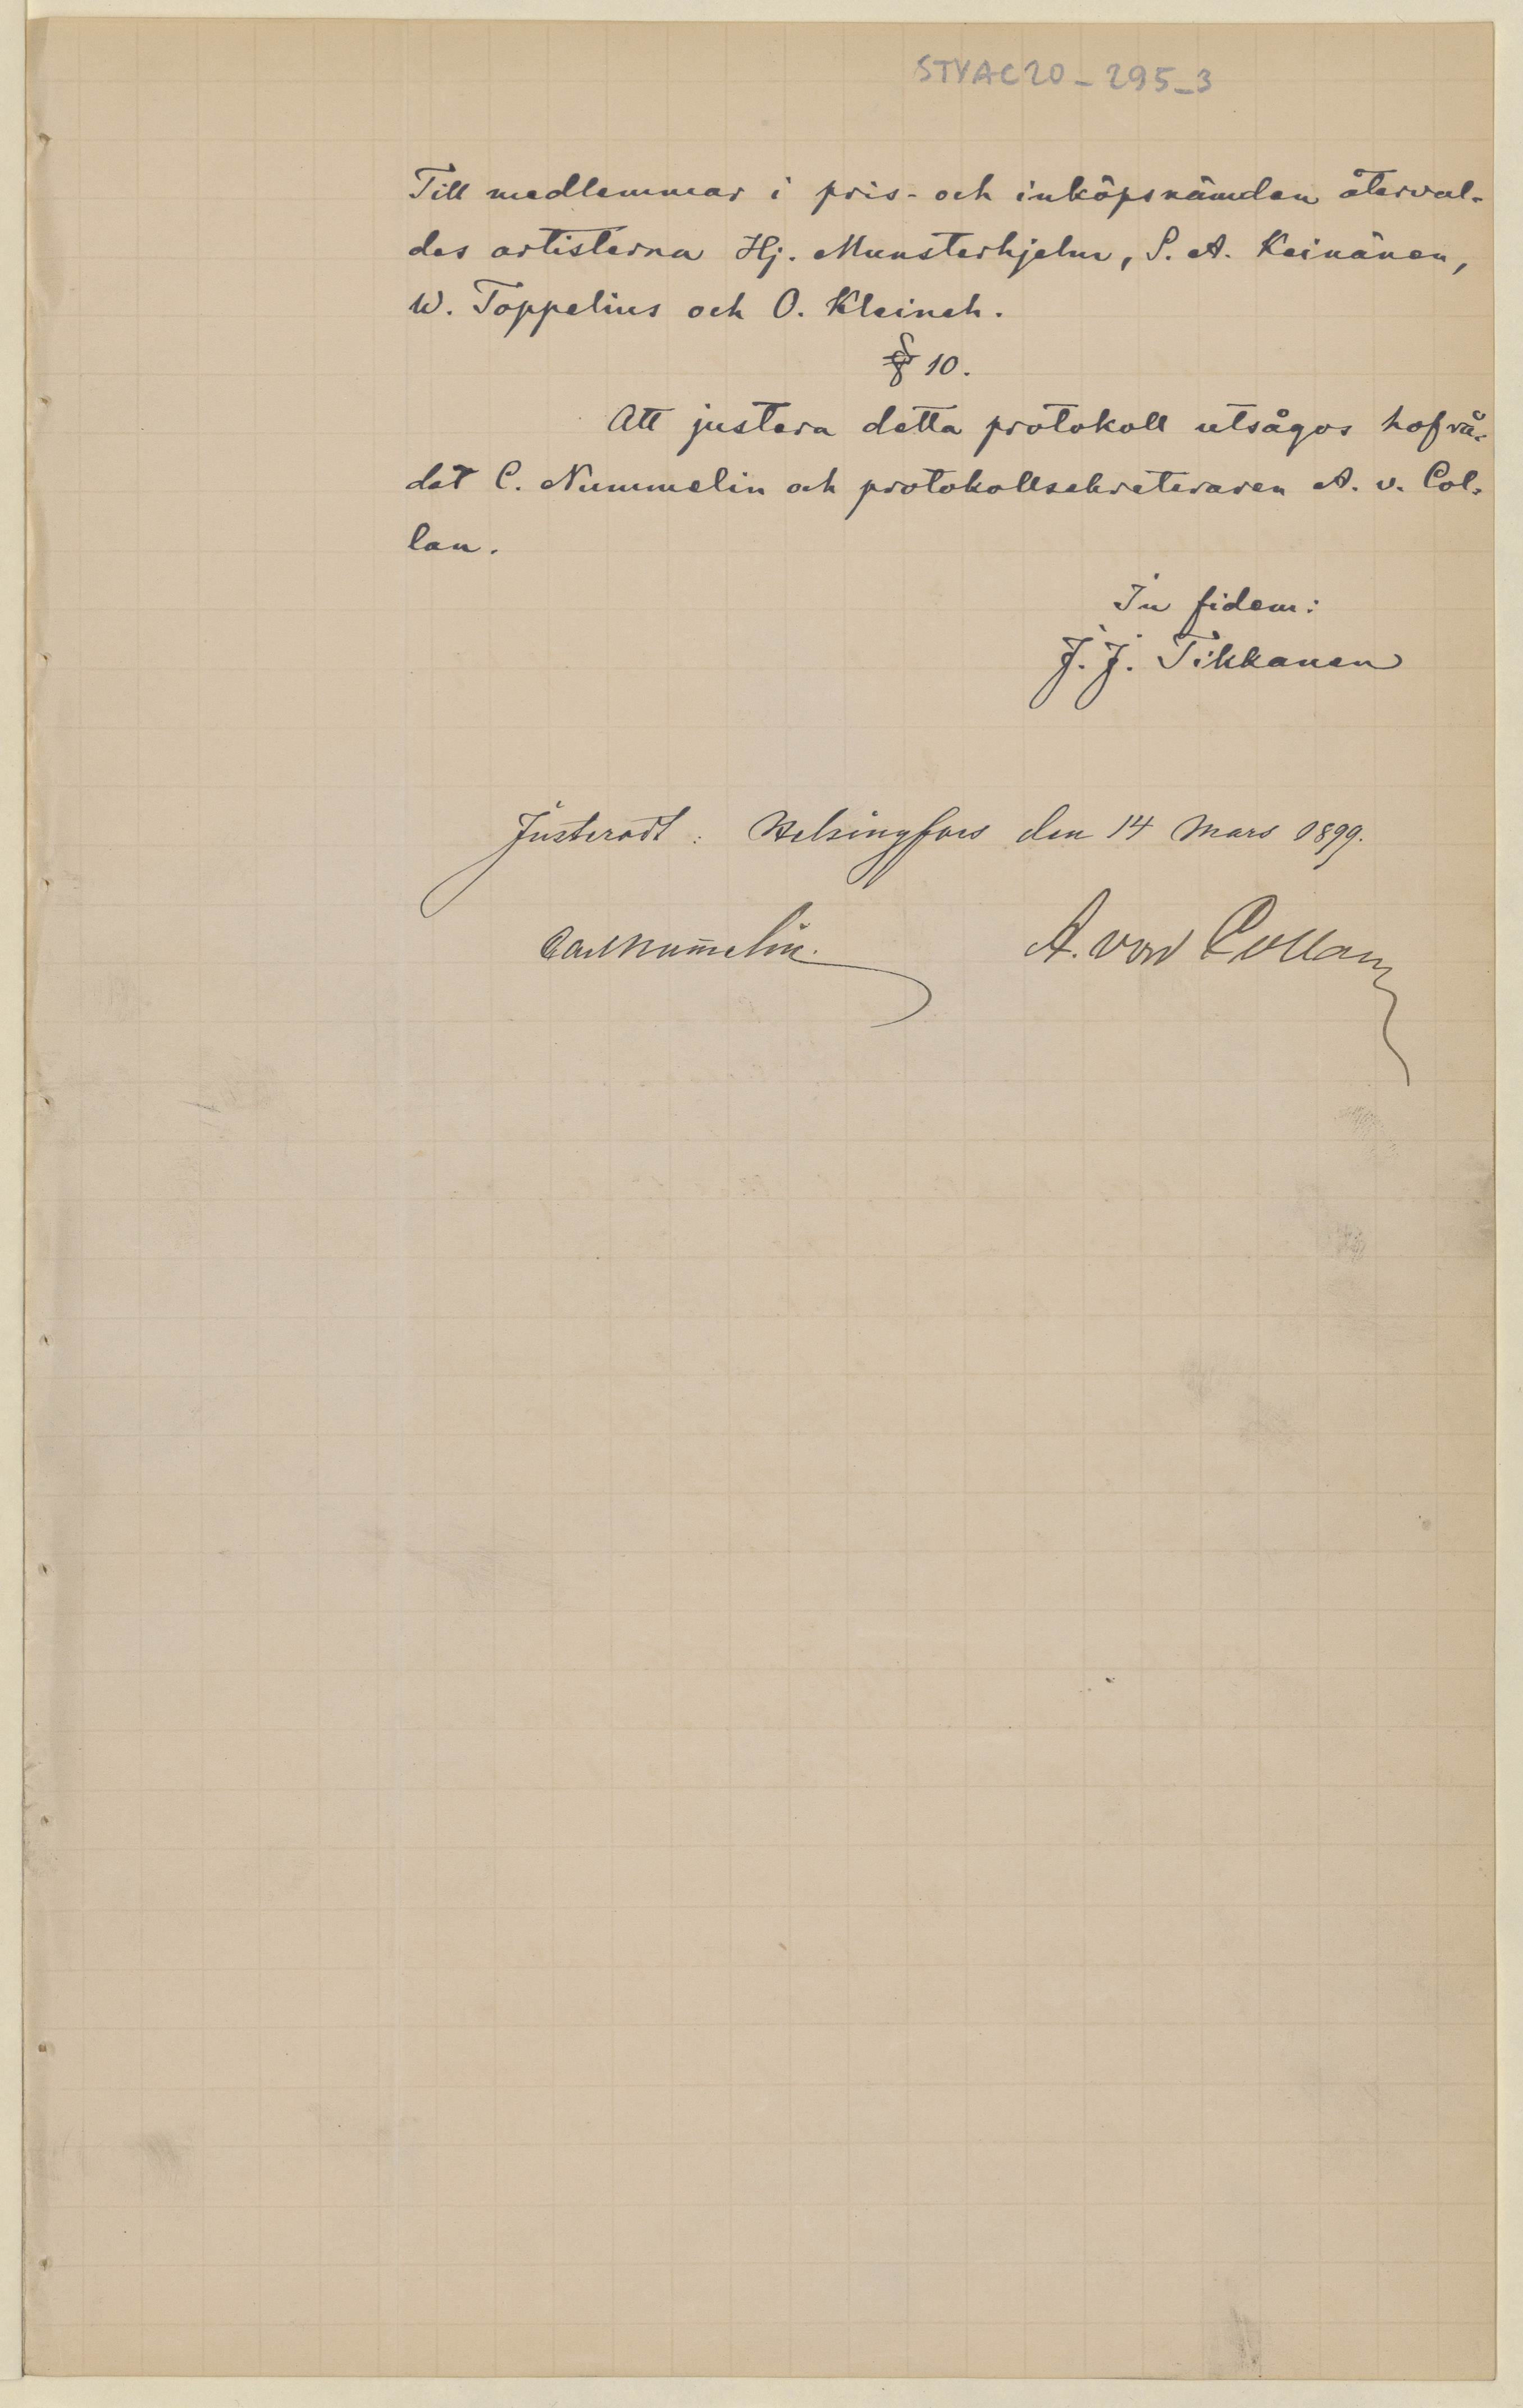 STYAC20_295_3
Till medlemmar i pris- och inköpsnämden återval-
des artisterna Hj. Munsterhjelm, S. A. Keinänen,
W. Toppelius och O. Kleineh.
§ 10.
Att justera detta protokoll utsågos hofrå-
det C. Nummelin och protokollsekreteraren A. v. Col-
lan.
In fidem:
J. J. Tikkanen
Justeradt: Helsingfors den 14 Mars 1899.
Carl Nummelin. A. von Collan